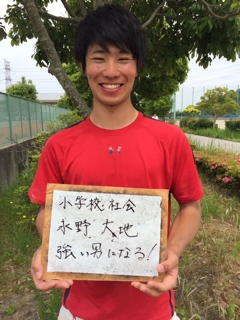 小学校社会
水野 大地
強い男になる!